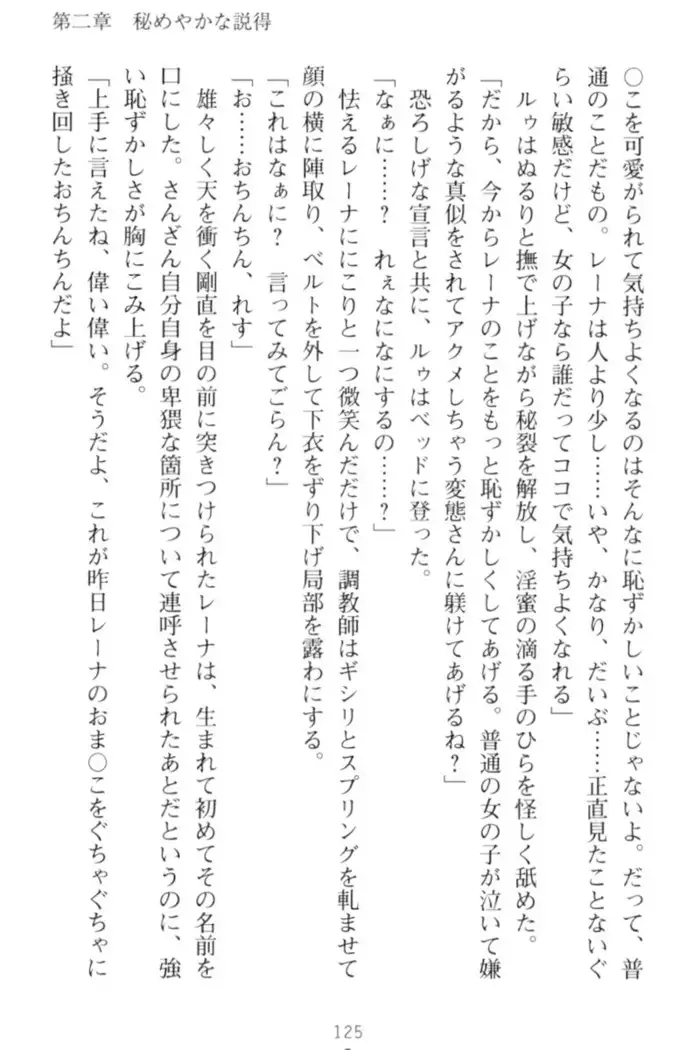 第二章　秘めやかな説得
○こを可愛がられて気持ちよくなるのはそんなに恥ずかしいことじゃないよ。だって、普
通のことだもの。レーナは人より少し……いや、かなり、だいぶ……正直見たことないぐ
らい敏感だけど、女の子なら誰だってココで気持ちよくなれる」
ルゥはぬるりと撫で上げながら秘裂を解放し、淫蜜の滴る手のひらを怪しく舐めた。
「だから、今からレーナのことをもっと恥ずかしくしてあげる。普通の女の子が泣いて嫌
がるような真似をされてアクメしちゃう変態さんに躾けてあげるね？」
恐ろしげな宣言と共に、ルゥはベッドに登った。
「なぁに……？　れぇなになにするの……？」
怯えるレーナににこりと一つ微笑んだだけで、調教師はギシリとスプリングを軋ませて
顔の横に陣取り、ベルトを外して下衣をずり下げ局部を露わにする。
「これはなぁに？　言ってみてごらん？」
「お……おちんちん、れす」
雄々しく天を衝く剛直を目の前に突きつけられたレーナは、生まれて初めてその名前を
口にした。さんざん自分自身の卑猥な箇所について連呼させられたあとだというのに、強
い恥ずかしさが胸にこみ上げる。
「上手に言えたね、偉い偉い。そうだよ、これが昨日レーナのおま○こをぐちゃぐちゃに
掻き回したおちんちんだよ」
125